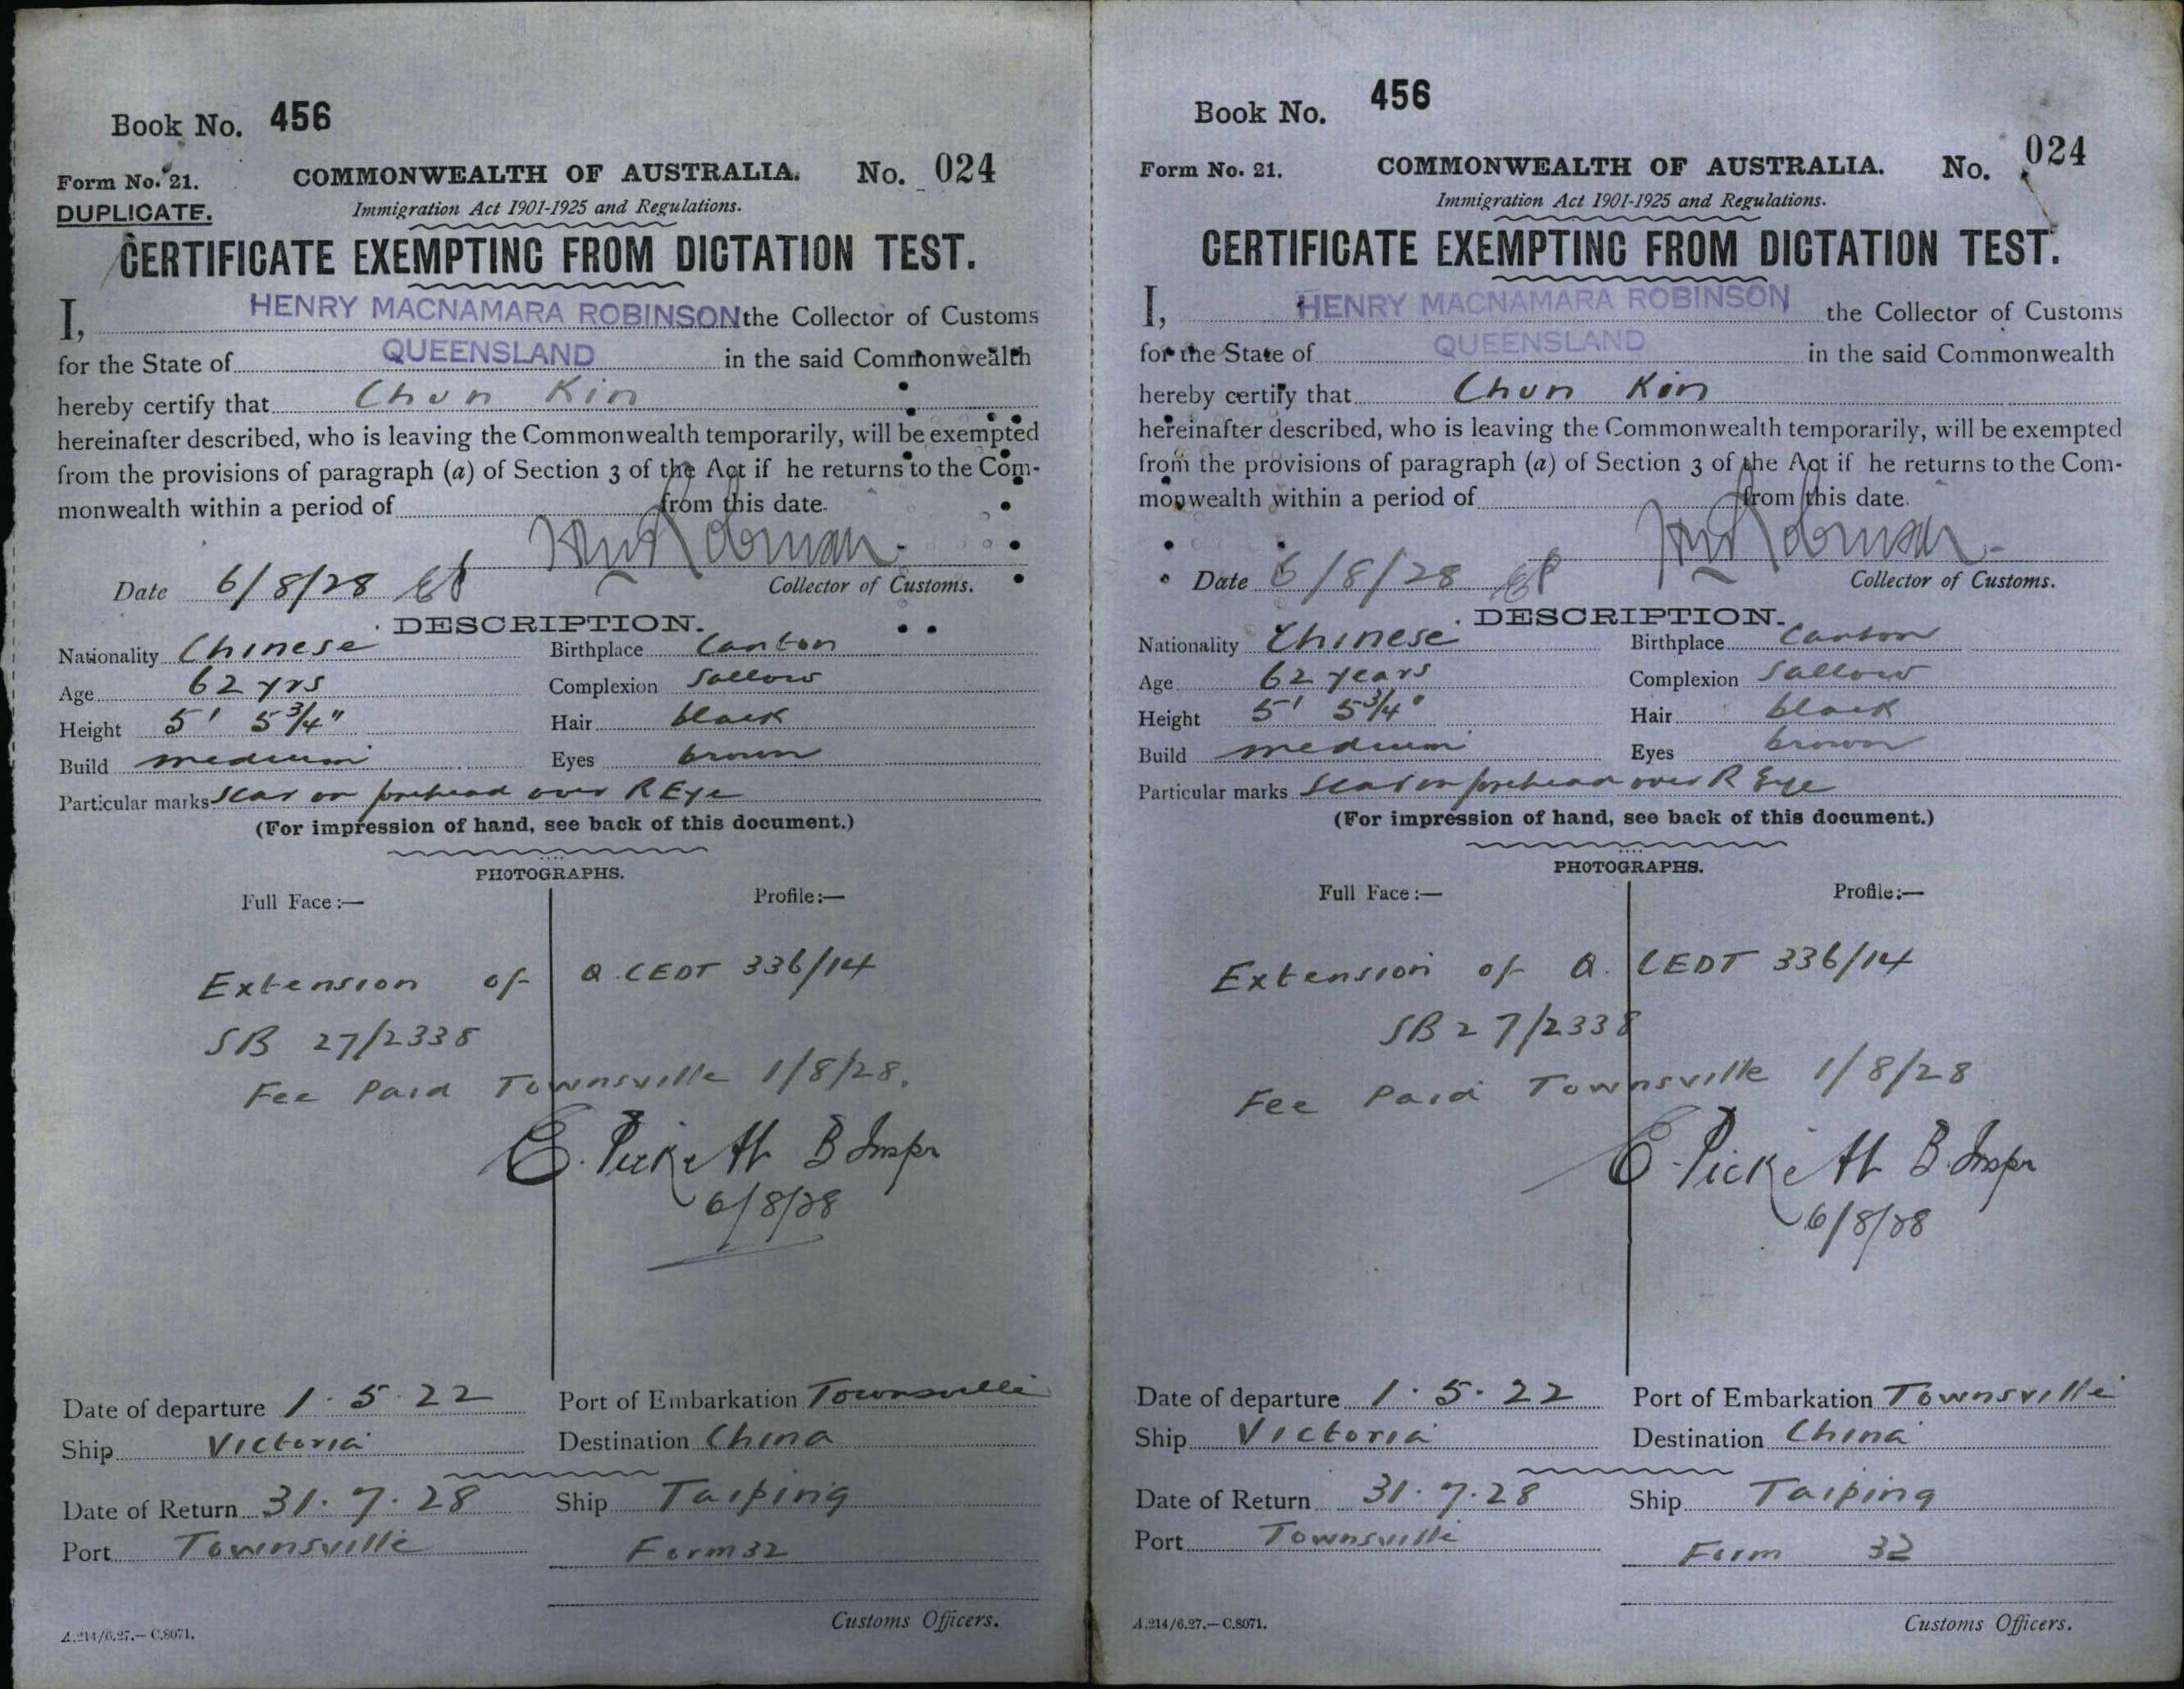 Book No. 456
Form No. 21.
DUPLICATE.
COMMONWEALTH OF AUSTRALIA. No. 024
Immigration Act 1901-1925 and Regulations.
CERTIFICATE EXEMPTING FROM DICTATION TEST.
I, HENRY MACNAMARA ROBINSON the Collector of Customs
for the State of QUEENSLAND in the said Commonwealth
hereby certify that Chun Kin
hereinafter described, who is leaving the Commonwealth temporarily, will be exempted
from the provisions of paragraph (a) of Section 3 of the Act if he returns to the Com-
monwealth within a period of from this date.
HMRobinson
Date 6/8/28 EP Collector of Customs.
DESCRIPTION.
Nationality Chinese Birthplace Canton
Age 62 yrs Complexion Sallow
Height 5' 5 3/4" Hair black
Build medium Eyes brown
Particular marks Scar on forehead over R Eye
(For impression of hand, see back of this document.)
PHOTOGRAPHS.
Full Face:— Profile:—
Extension of Q. CEDT 336/14
SB 27/2338
Fee Paid Townsville 1/8/28.
E. Pickett B Inspr
6/8/28
Date of departure 1.5.22 Port of Embarkation Townsville
Ship Victoria Destination China
Date of Return 31.7.28 Ship Taiping
Port Townsville Form 32
Customs Officers.
A.214/6.27.—C.8071.
Book No. 456
Form No. 21. COMMONWEALTH OF AUSTRALIA. No. 024
Immigration Act 1901-1925 and Regulations.
CERTIFICATE EXEMPTING FROM DICTATION TEST.
I, HENRY MACNAMARA ROBINSON the Collector of Customs
for the State of QUEENSLAND in the said Commonwealth
hereby certify that Chun Kin
hereinafter described, who is leaving the Commonwealth temporarily, will be exempted
from the provisions of paragraph (a) of Section 3 of the Act if he returns to the Com-
monwealth within a period of from this date.
HMRobinson
Date 6/8/28 EP Collector of Customs.
DESCRIPTION.
Nationality Chinese Birthplace Canton
Age 62 years Complexion Sallow
Height 5' 5 3/4" Hair black
Build medium Eyes brown
Particular marks Scar on forehead over R Eye
(For impression of hand, see back of this document.)
PHOTOGRAPHS.
Full Face:— Profile:—
Extension of Q. CEDT 336/14
SB 27/2338
Fee Paid Townsville 1/8/28
E. Pickett B. Inspr
6/8/28
Date of departure 1.5.22 Port of Embarkation Townsville
Ship Victoria Destination China
Date of Return 31.7.28 Ship Taiping
Port Townsville Form 32
Customs Officers.
A.214/6.27.—C.8071.